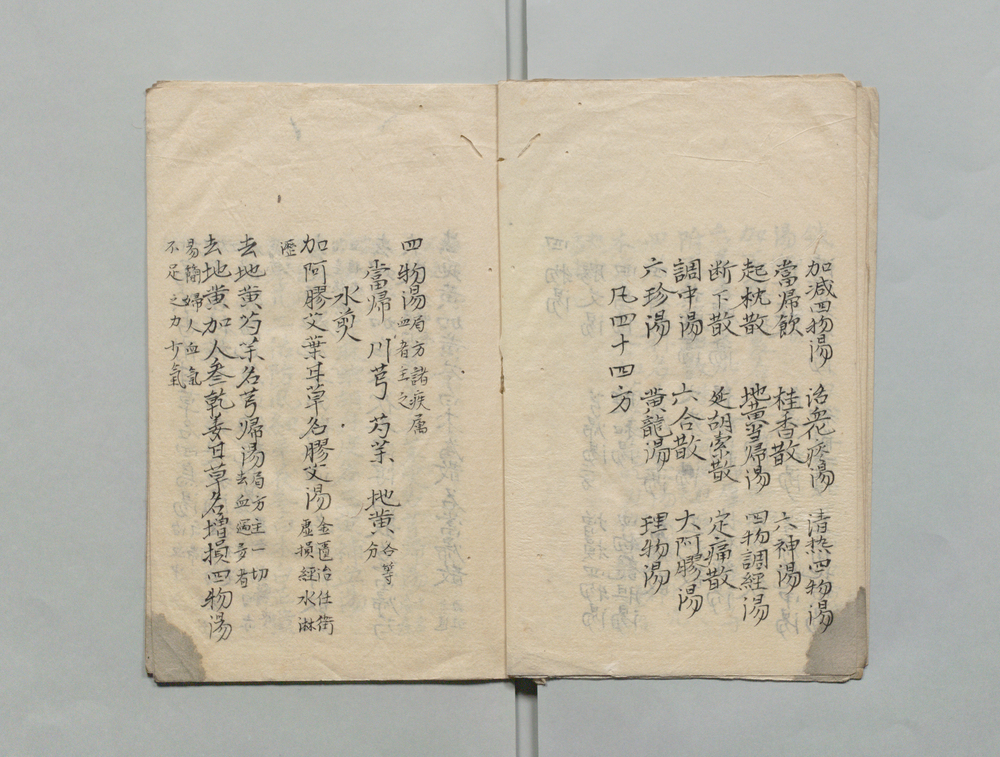 加减四物湯 治血疼湯 清热四物湯
當帰飲 桂香散 六神湯
起枕散 地黄當帰湯 四物調經湯
断下散 延胡索散 定痛散
調中湯 六合散 大阿膠湯
六珍湯 黄龍湯 理物湯
凡四十四方
四物湯 局方諸疾属
血者主之
當帰 川芎 芍茱 地黄 各等
分
水煎
加阿膠艾葉甘草名膠艾湯 金匱治任衝
虚損經水淋
瀝
去地黄芍茱名芎帰湯 局方主一切
去血過多者
去地黄加人参乾姜甘草名増損四物湯
易簡婦人血氣
不足之力少氣